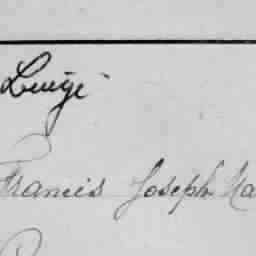 Luigi
Francis Joseph Na